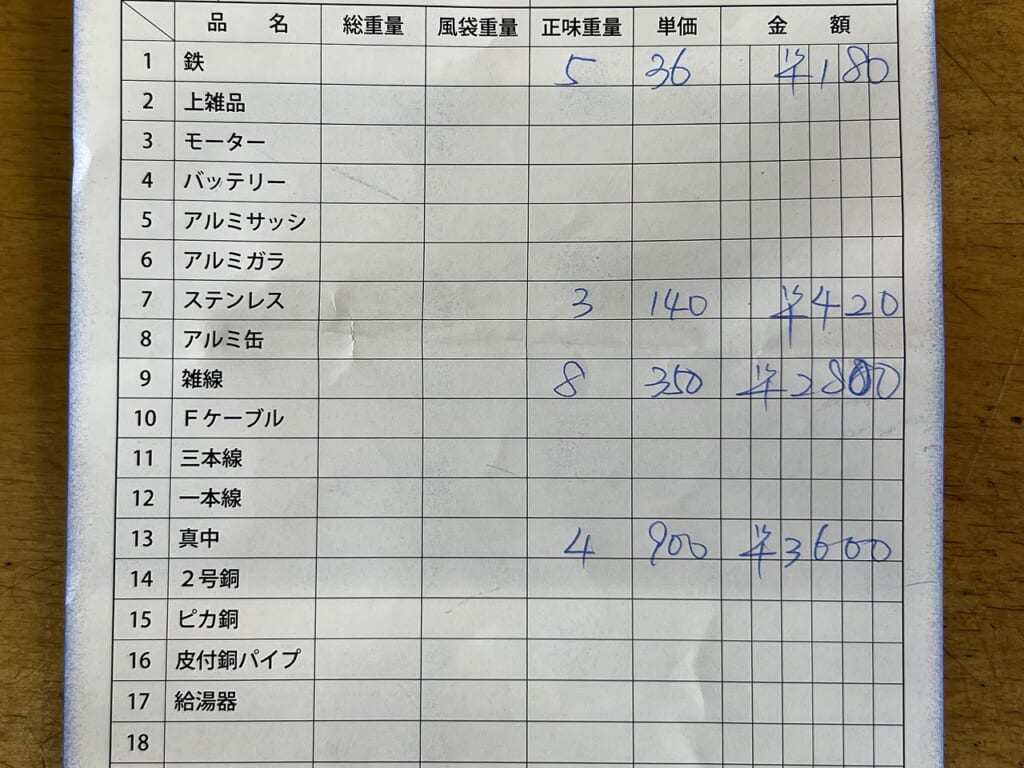 品 名 総重量 風袋重量 正味重量 単価 金 額
1 鉄 5 36 ¥180
2 上雑品
3 モーター
4 バッテリー
5 アルミサッシ
6 アルミガラ
7 ステンレス 3 140 ¥420
8 アルミ缶
9 雑線 8 350 ¥2800
10 Fケーブル
11 三本線
12 一本線
13 真中 4 900 ¥3600
14 2号銅
15 ピカ銅
16 皮付銅パイプ
17 給湯器
18